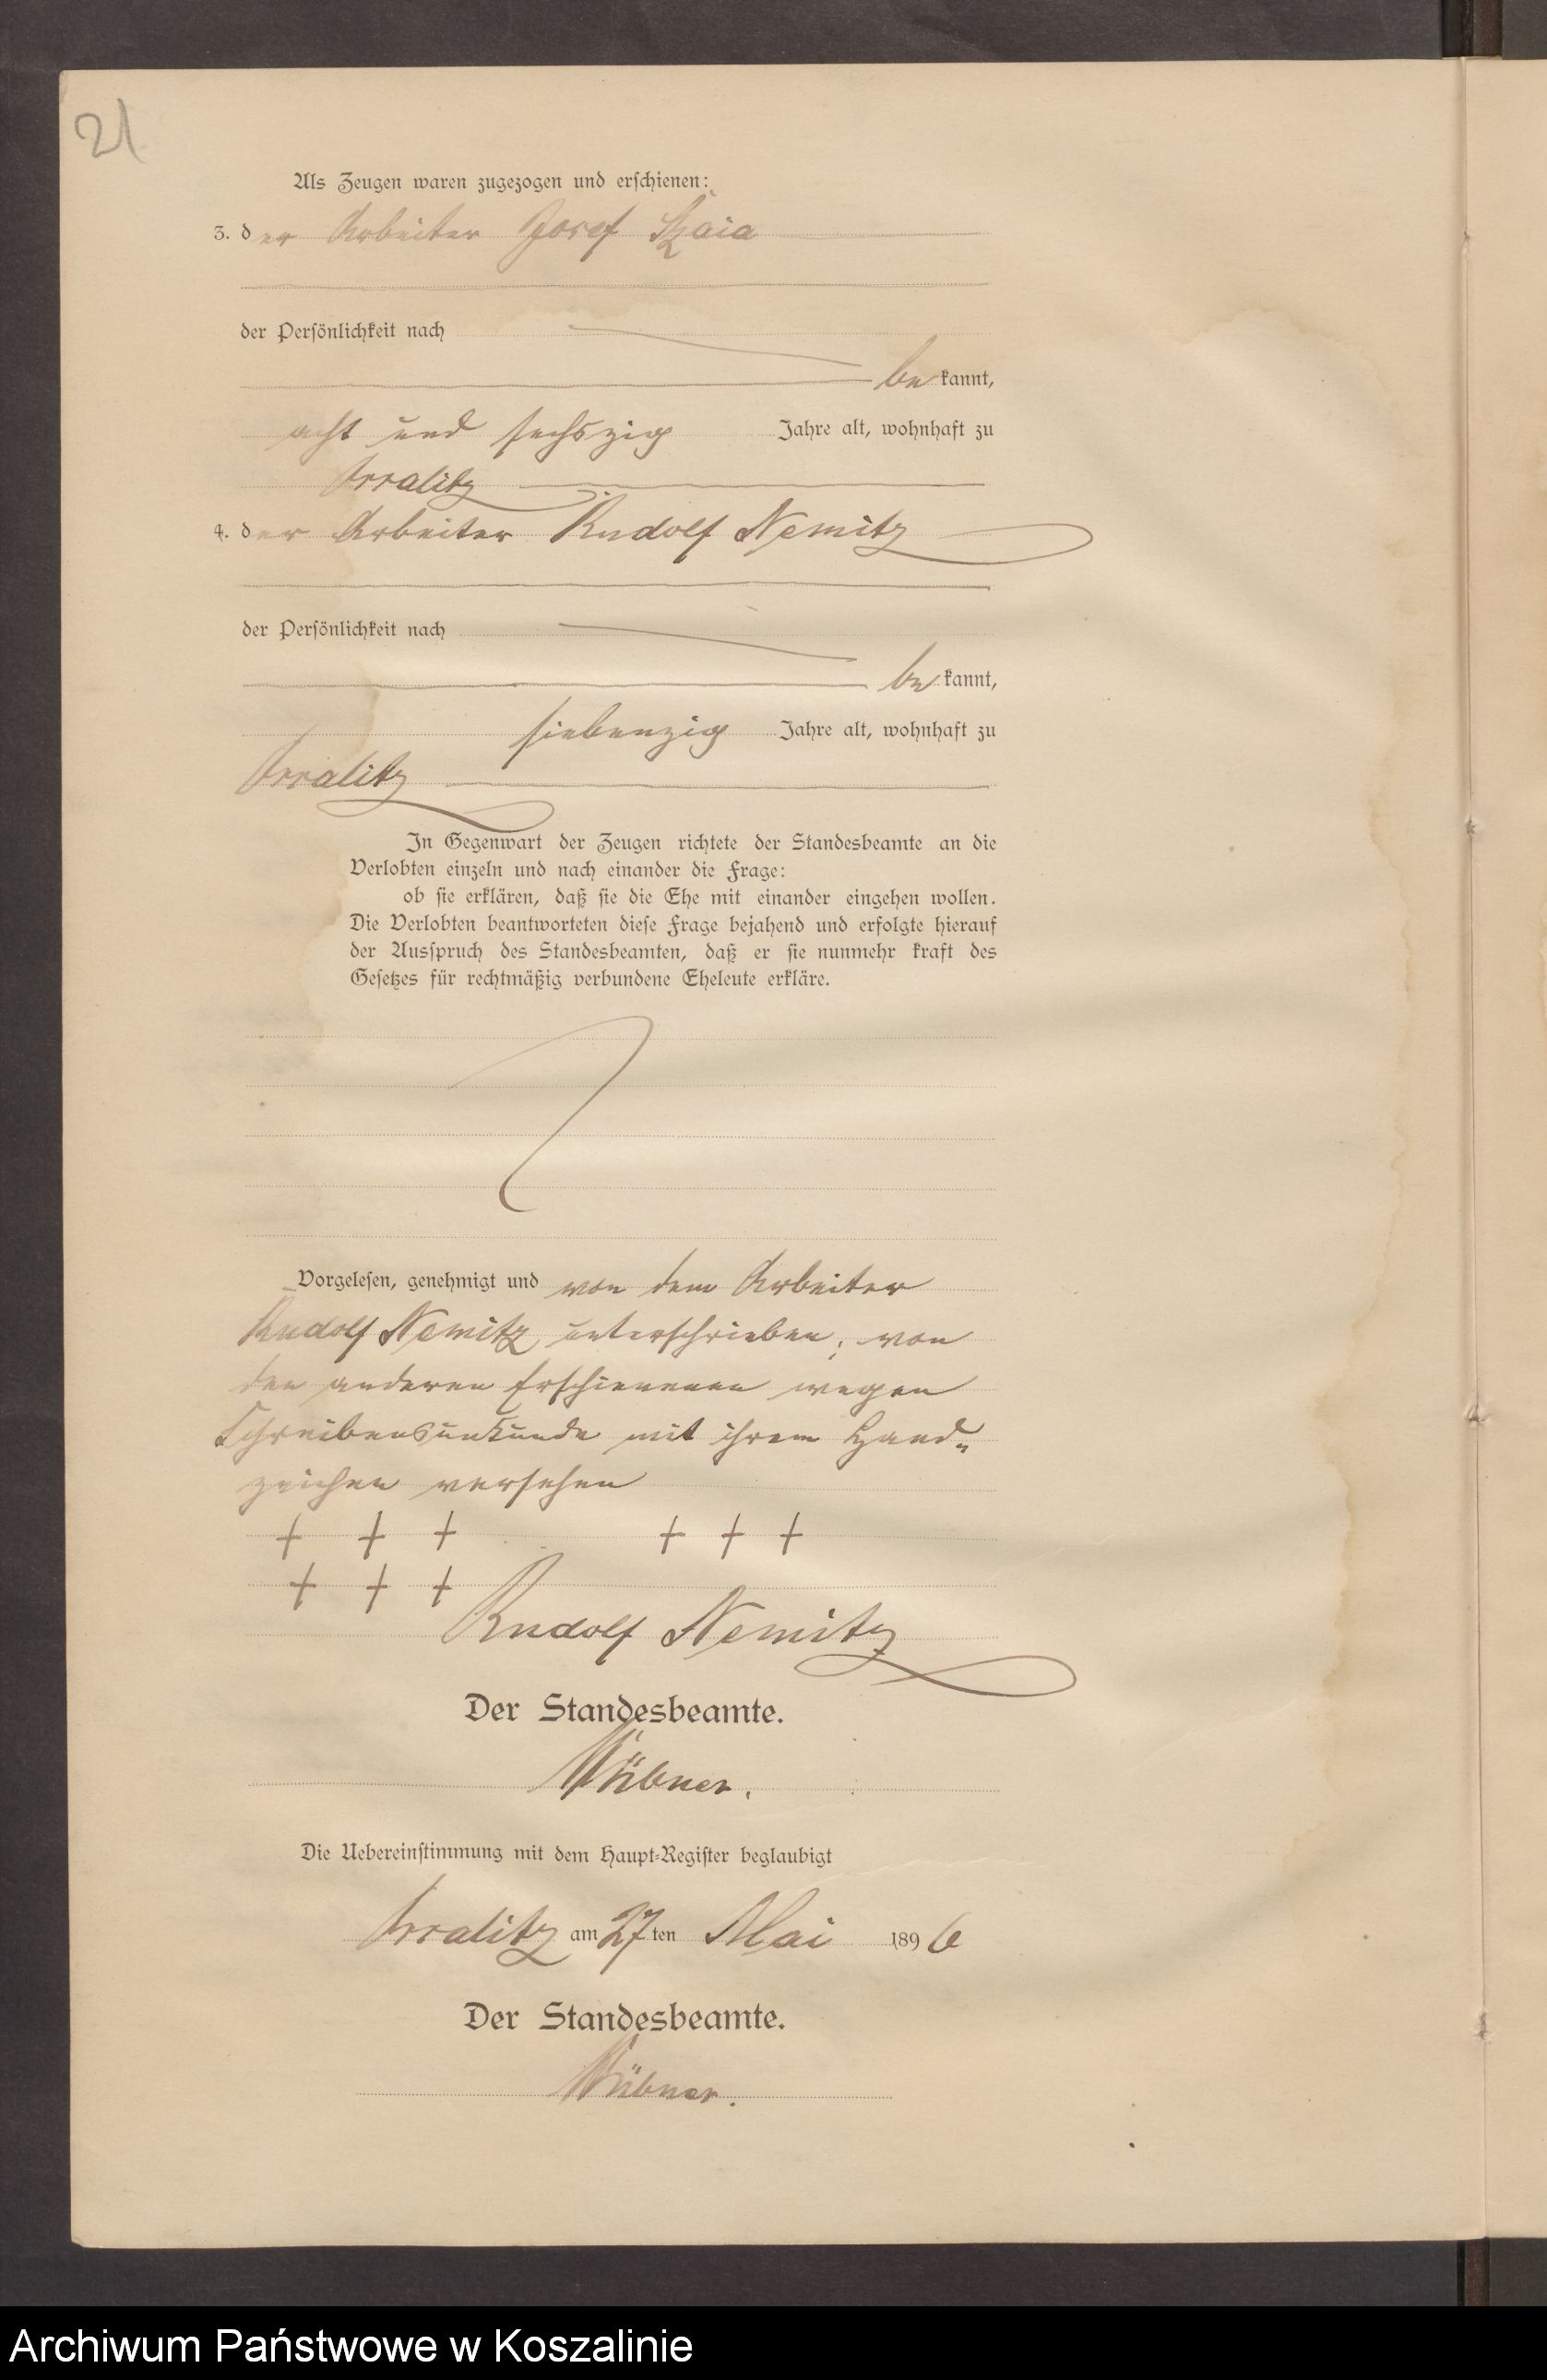 21
Als Zeugen waren zugezogen und erschienen:
3. der Arbeiter Josef
der Persönlichkeit nach
bekannt,
acht und sechszig Jahre alt, wohnhaft zu
4. der Arbeiter Rudolf Nemitz
der Persönlichkeit nach
bekannt,
siebenzig Jahre alt, wohnhaft zu
In Gegenwart der Zeugen richtete der Standesbeamte an die
Verlobten einzeln und nach einander die Frage:
ob sie erklären, daß sie die Ehe mit einander eingehen wollen.
Die Verlobten beantworteten diese Frage bejahend und erfolgte hierauf
der Ausspruch des Standesbeamten, daß er sie nunmehr kraft des
Gesetzes für rechtmäßig verbundene Eheleute erkläre.
Vorgelesen, genehmigt und von dem Arbeiter
Rudolf Nemitz unterschrieben, von
den anderen Erschienenen wegen
Schreibensunkunde mit ihrem Hand-
zeichen versehen
+ + + + + +
+ + +
Rudolf Nemitz
Der Standesbeamte.
Die Uebereinstimmung mit dem Haupt-Register beglaubigt
am 27ten Mai 1896
Der Standesbeamte.
Archiwum Państwowe w Koszalinie